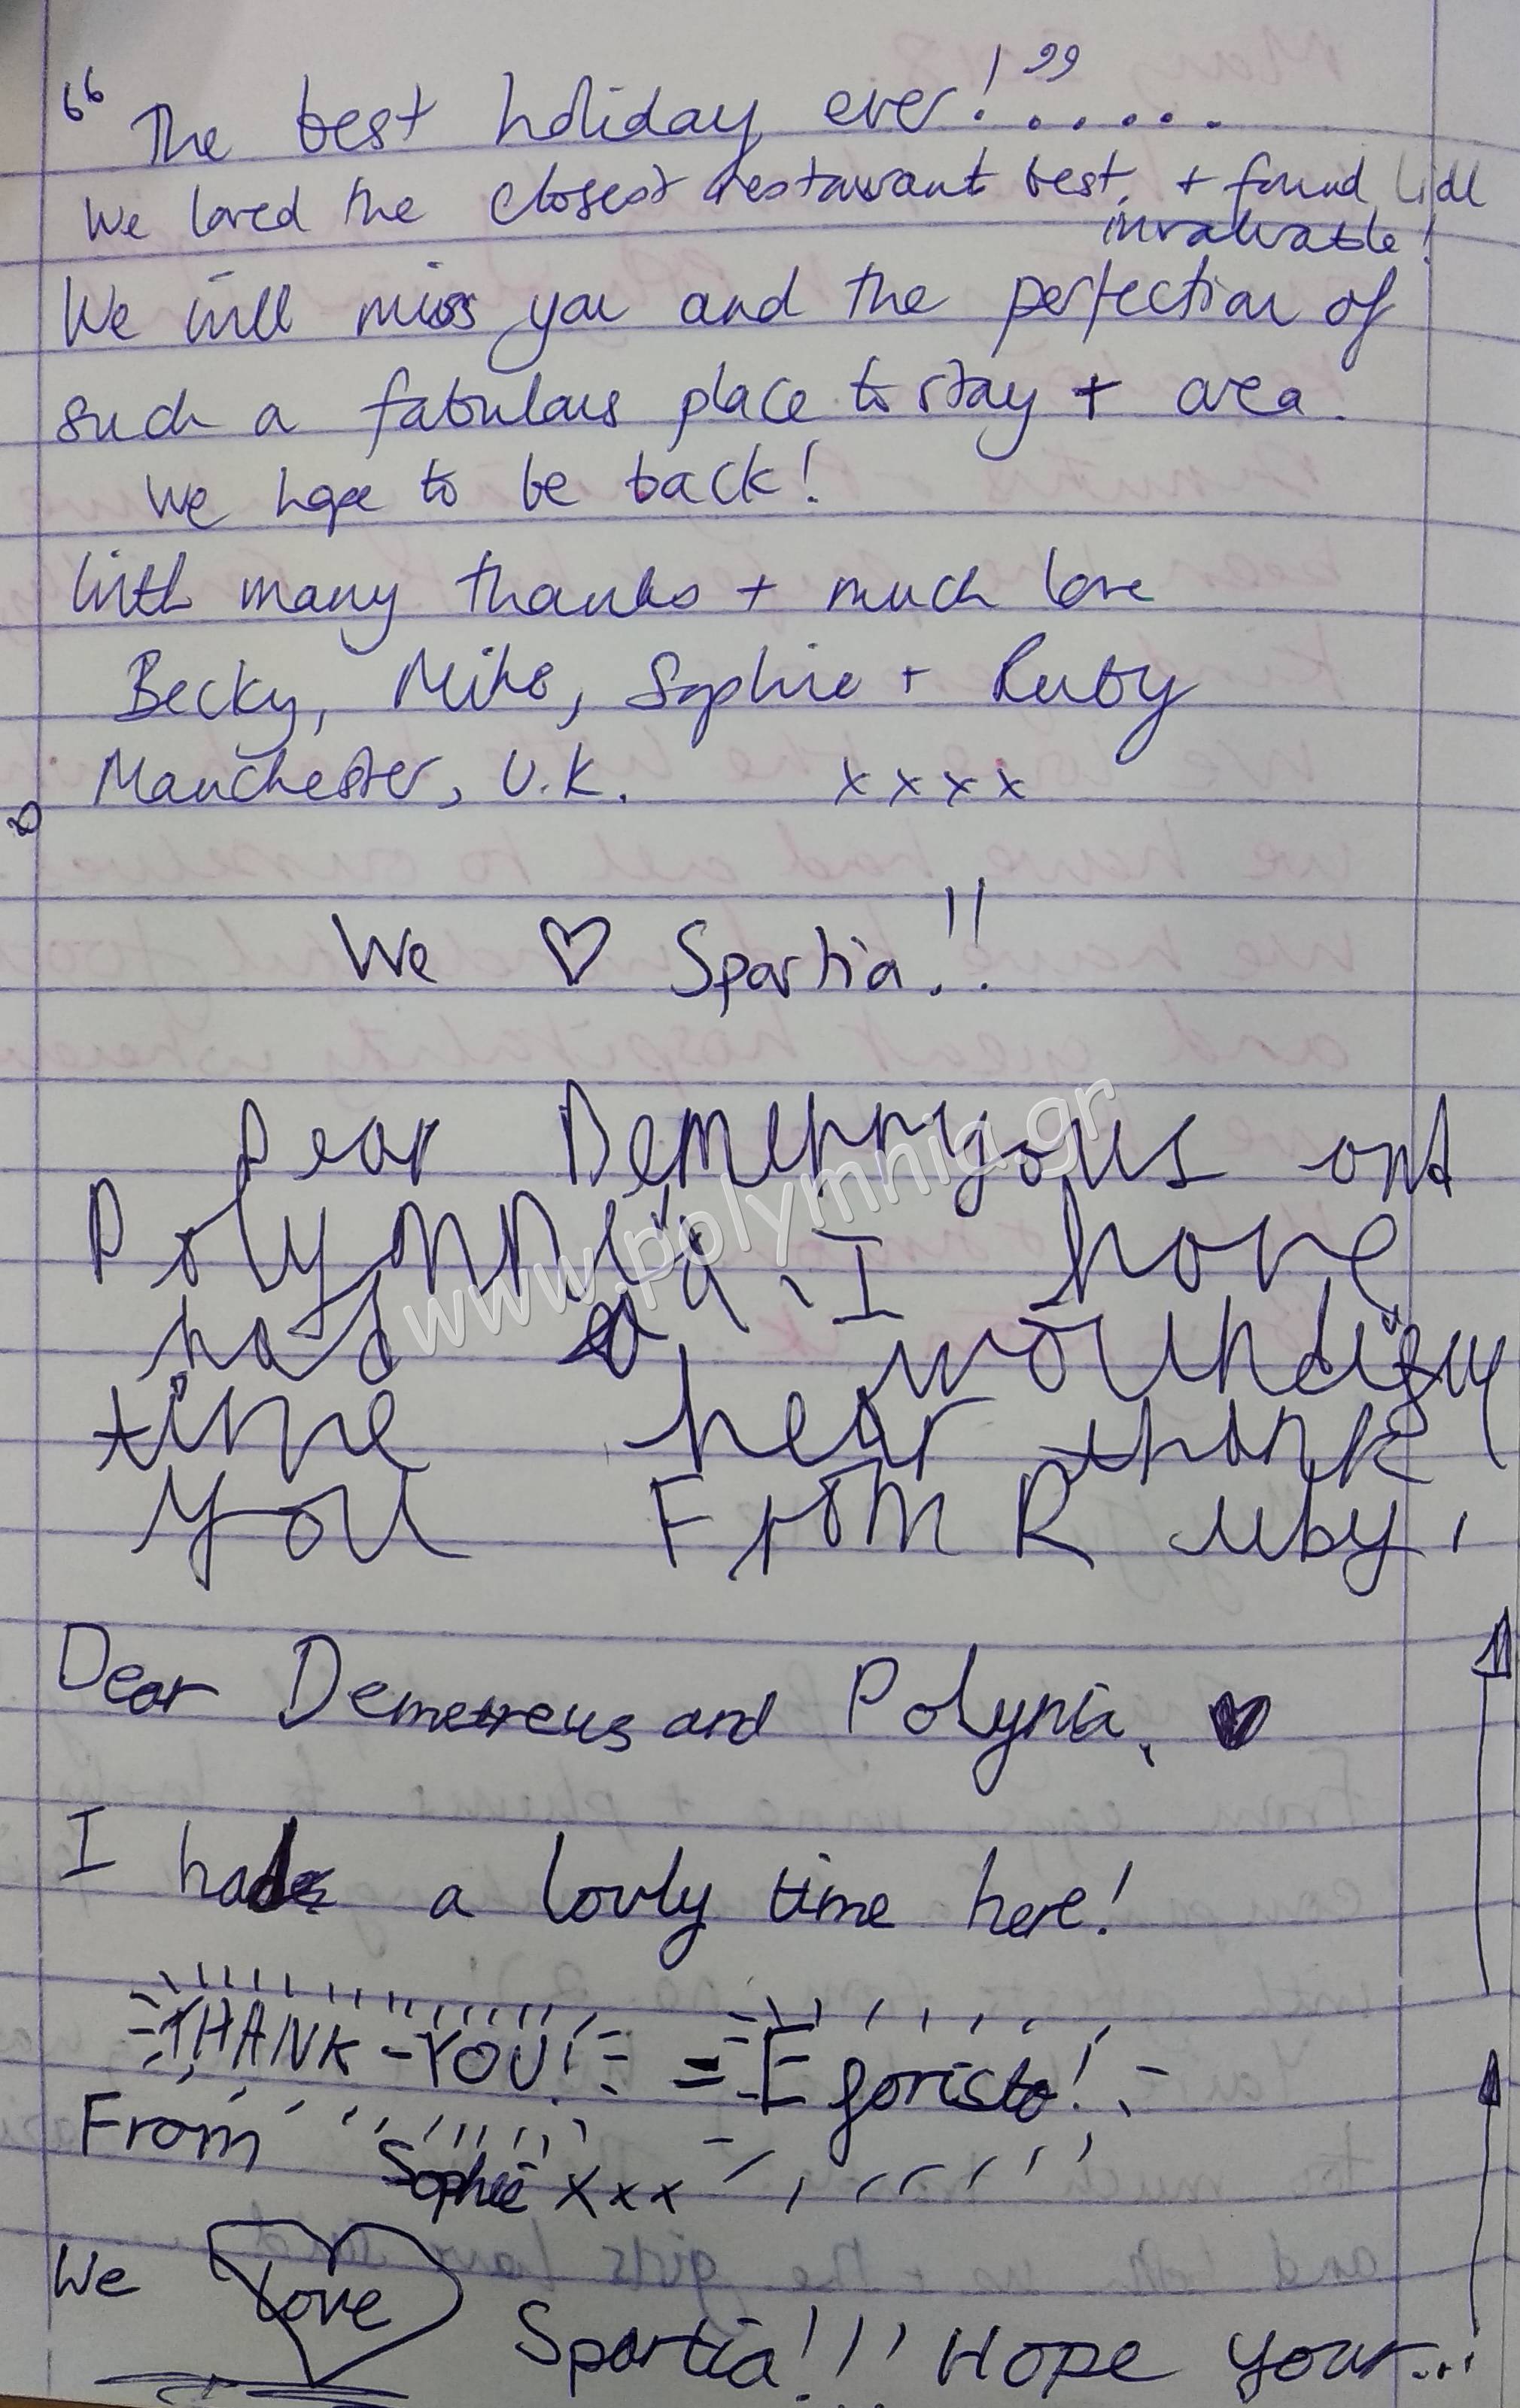 “The best holiday ever!”......
We loved the closest restaurant best, + found Lidl
invaluable!
We will miss you and the perfection of
such a fabulous place to stay + area.
We hope to be back!
With many thanks + much love
Becky, Mike, Sophie + Ruby
Manchester, U.K. xxxx
We ♡ Spartia!!
Dear and
Polymnia. I have
had a
time hear thank
you From Ruby.
Dear Demetreus and Polynia, ♥
I had a lovly time here!
THANK-YOU! = Efforisto!
From
Sophie xxx
We love
Spartia!!! Hope your...
www.polymnia.gr